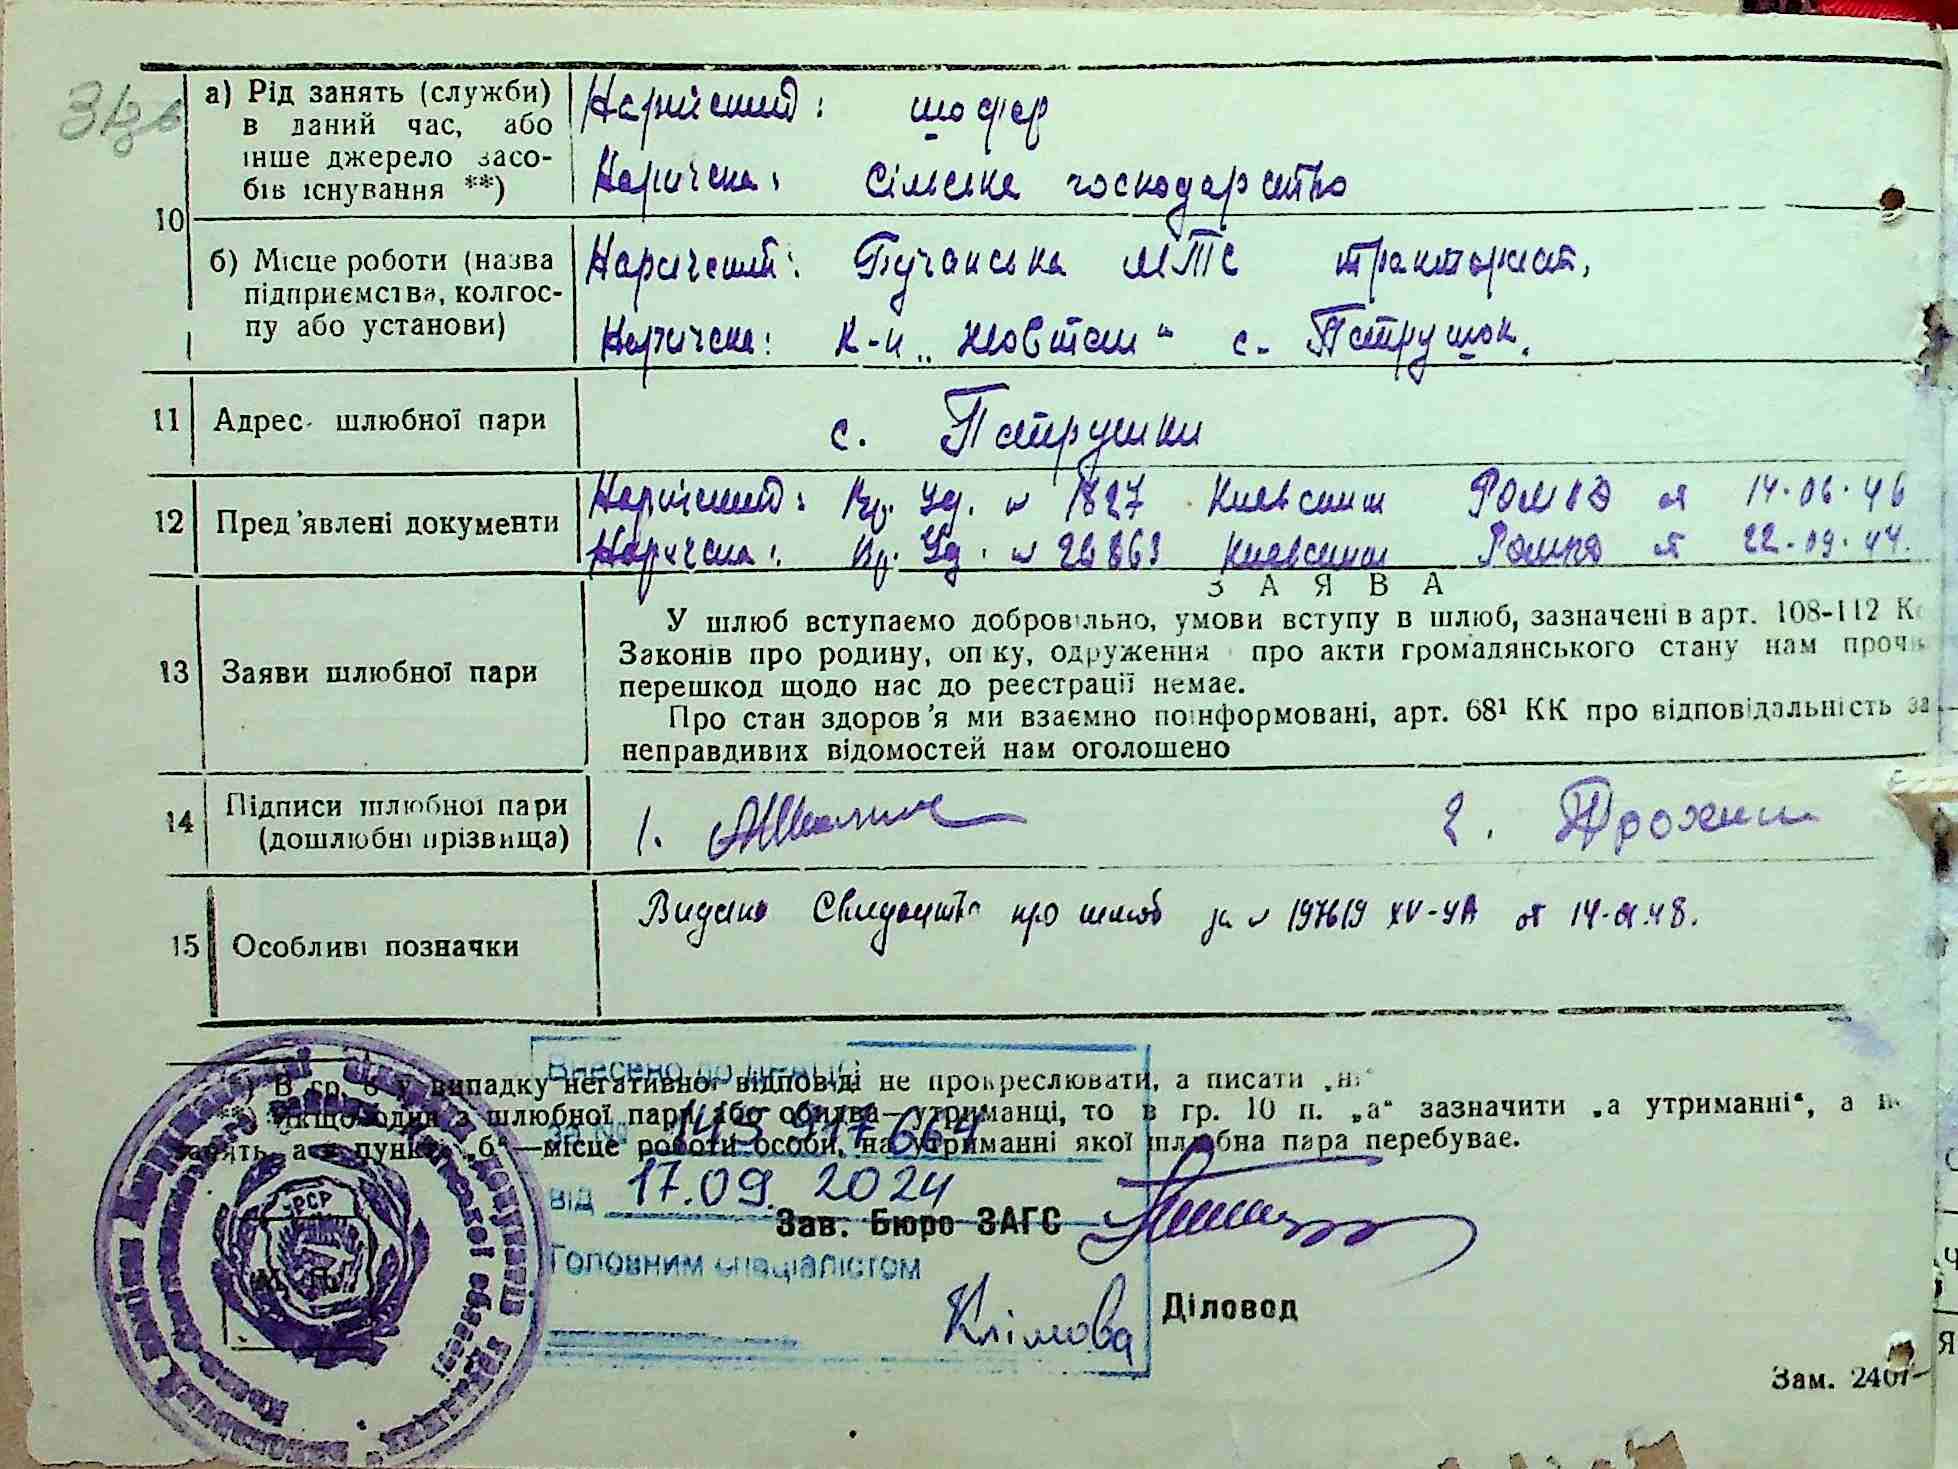 а) Рід занять (служби)
в даний час, або
інше джерело засо-
бів існування **)
Наречений: шофер
Наречена: сільське господарство
10
б) Місце роботи (назва
підприємства, колгос-
пу або установи)
Наречений: Бучанська МТС
Наречена: К-п „Жовтень" с. Петрушок.
11 Адрес шлюбної пари
с. Петрушки
12 Пред'явлені документи
Наречений: Вр. Уд. № 1827 Киевским РОМВД от 14.06.46
Наречена: Вр. Уд. № 26863 Киевским от 22.09.44.
ЗАЯВА
13 Заяви шлюбної пари
У шлюб вступаємо добровільно, умови вступу в шлюб, зазначені в арт. 108-112
Законів про родину, опіку, одруження про акти громадянського стану нам
перешкод щодо нас до реєстрації немає.
Про стан здоров'я ми взаємно поінформовані, арт. 68¹ КК про відповідальність за
неправдивих відомостей нам оголошено
14 Підписи шлюбної пари
(дошлюбні прізвища)
1. 2.
15 Особливі позначки
Видано Свидоцтво про шлюб за № 197619 XV-УА от 14- 48.
Внесено до ДРАЦС
*) В гр. 6 у випадку негативної відповіді не прокреслювати, а писати „ні"
**) Якщо один з шлюбної пари або обидва—утриманці, то в гр. 10 п. „а" зазначити „а утриманні", а
а в пункті „б"—місце роботи особи, на утриманні якої шлюбна пара перебуває.
664
від 17.09.2024
Зав. Бюро ЗАГС
Головним спеціалістом
Клімова
Діловод
УРСР
М. П.
Зам. 2407